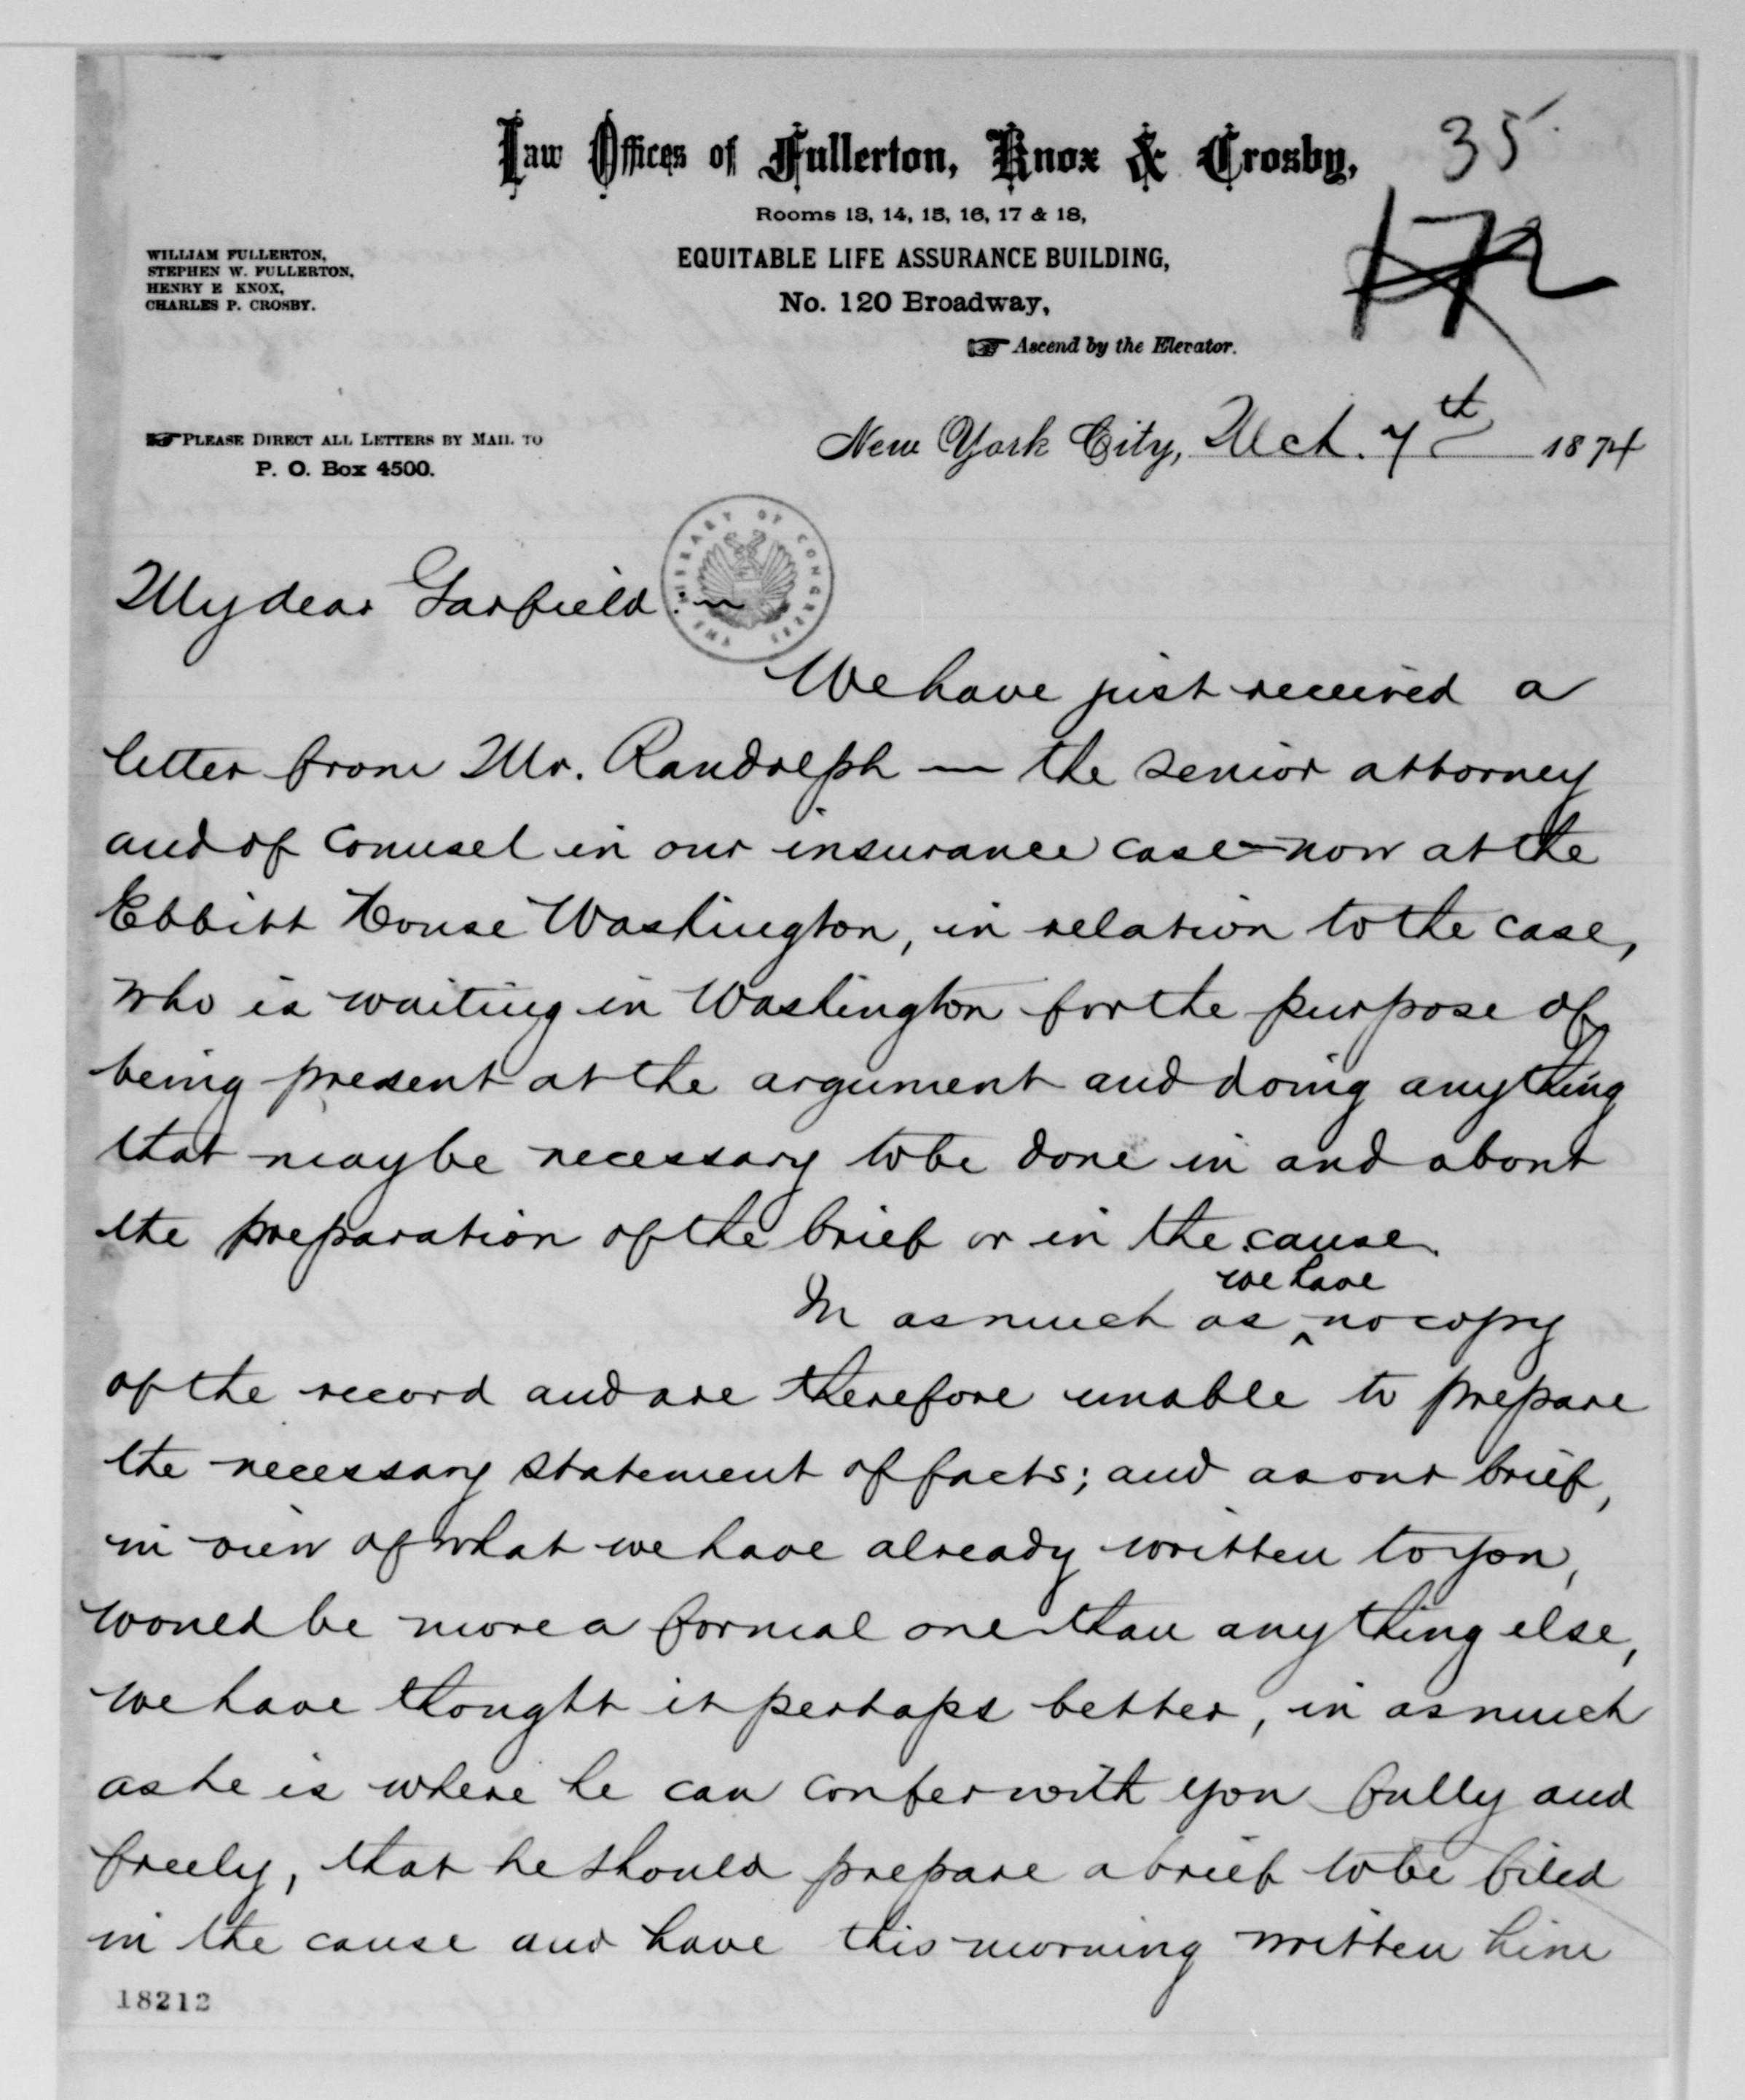 35
Law Offices of Fullerton, Knox & Crosby,
Rooms 13, 14, 15, 16, 17 & 18,
EQUITABLE LIFE ASSURANCE BUILDING,
No. 120 Broadway,
Ascend by the Elevator.
WILLIAM FULLERTON,
STEPHEN W. FULLERTON,
HENRY E KNOX,
CHARLES P. CROSBY.
PLEASE DIRECT ALL LETTERS BY MAIL TO
P. O. Box 4500.
New York City, Mch. 7th 1874
THE LIBRARY OF CONGRESS
My dear Garfield:—
We have just received a
letter from Mr. Randolph — the senior attorney
and of counsel in our insurance case — now at the
Ebbitt House Washington, in relation to the case,
who is waiting in Washington for the purpose of
being present at the argument and doing anything
that may be necessary to be done in and about
the preparation of the brief or in the cause.
In as much as ^ we have no copy
of the record and are therefore unable to prepare
the necessary statement of facts; and as our brief,
in view of what we have already written to you,
would be more a formal one than any thing else,
we have thought it perhaps better, in as much
as he is where he can confer with you fully and
freely, that he should prepare a brief to be filed
in the cause and have this morning written him
18212